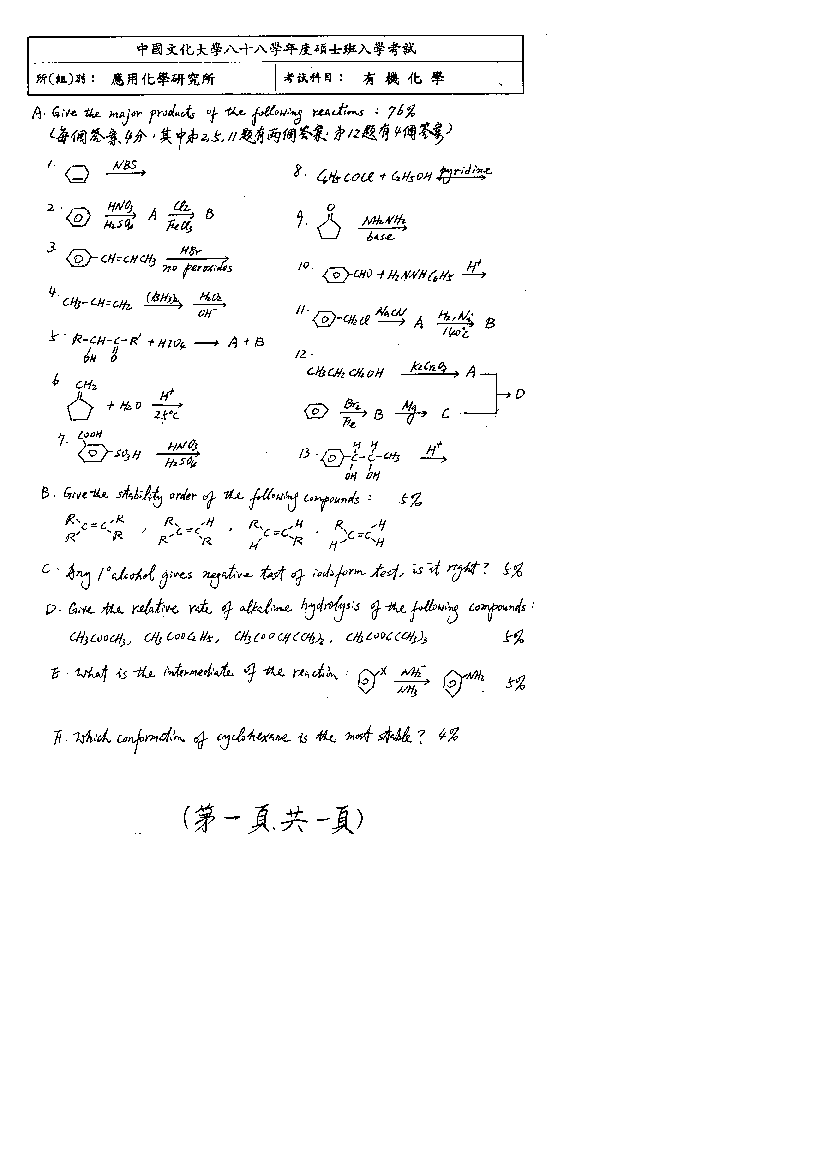 中國文化大學八十八學年度碩士班入學考試
所(組)別： 應用化學研究所 考試科目： 有機化學
A. Give the major products of the following reactions : 76%
(每個答案4分，其中第2,5,11題有兩個答案；第12題有4個答案)
1. NBS
2. HNO3 H2SO4 A Cl2 FeCl3 B
3. CH=CHCH3 HBr no peroxides
4. CH3-CH=CH2 (BH3)2 H2O2 OH-
5. R-CH-C-R' + HIO4 → A + B
OH O
6. CH2 + H2O H+ 25°C
7. COOH SO3H HNO3 H2SO4
8. C6H5COCl + C2H5OH pyridine
9. O NH2NH2 base
10. CHO + H2NNHC6H5 H+
11. CH2Cl NaCN A H2, Ni 140°C B
12. CH3CH2CH2OH K2Cr2O7 A
Br2 Fe B Mg C → D
13. H H C-C-CH3 OH OH H+
B. Give the stability order of the following compounds : 5%
R R C=C R R , R H C=C R R , R H C=C H R , R H C=C H H
C. Any 1° alcohol gives negative test of iodoform test, is it right? 5%
D. Give the relative rate of alkaline hydrolysis of the following compounds :
CH3COOCH3, CH3COOC2H5, CH3COOCH(CH3)2, CH3COOC(CH3)3 5%
E. What is the intermediate of the reaction : X NH2- NH3 NH2 5%
F. Which conformation of cyclohexane is the most stable? 4%
(第一頁，共一頁)